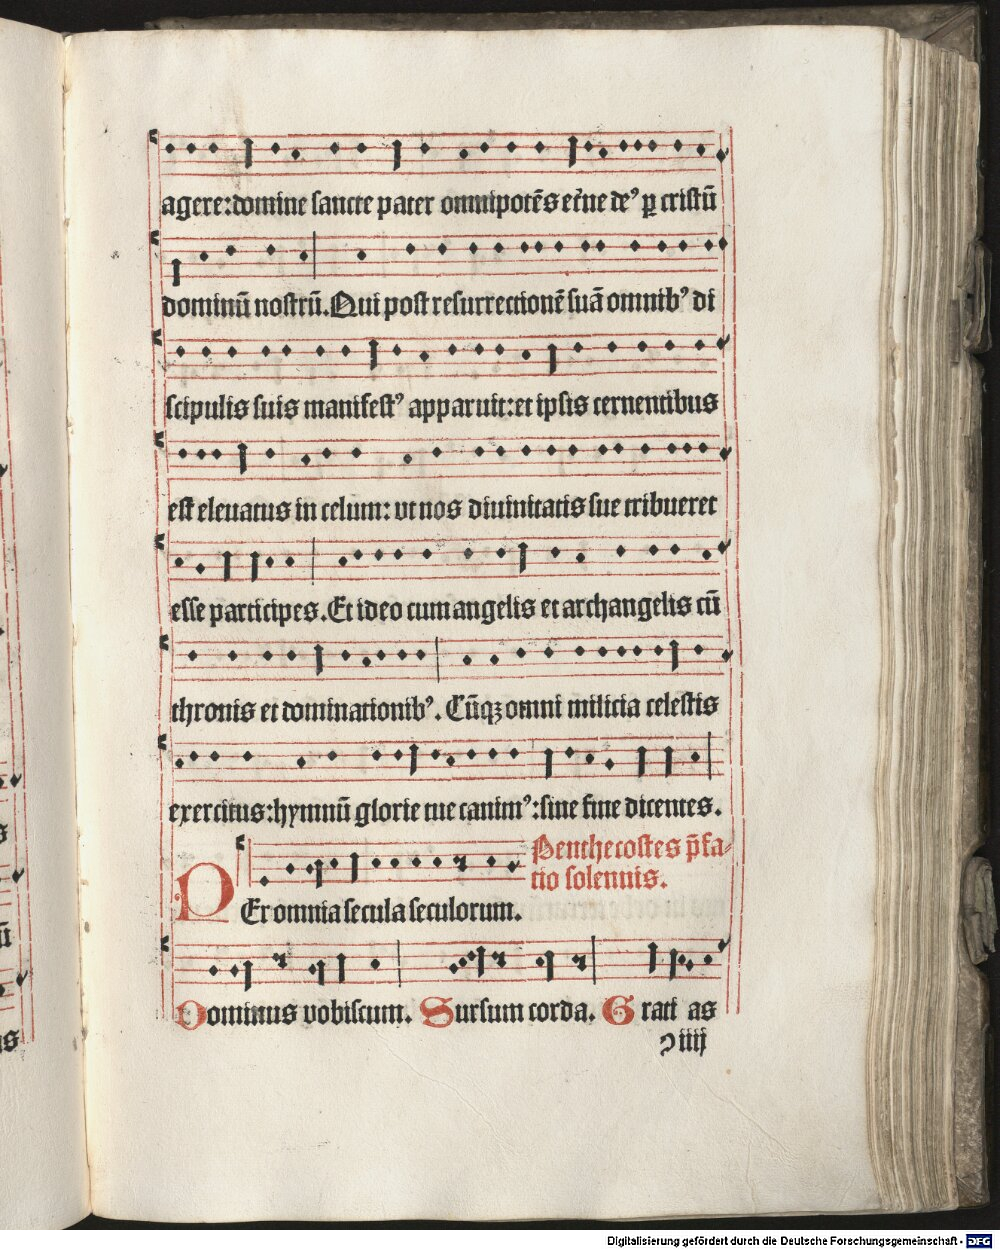 agere:domine sancte pater omnipotẽs eťne deꝰ ꝑ cristũ
dominũ nostrũ. Qui post resurrectionẽ suã omnibꝰ di
scipulis suis manifestꝰ apparuit:et ipsis cernentibus
est eleuatus in celum: vt nos diuinitatis sue tribueret
esse participes. Et ideo cum angelis et archangelis cũ
thronis et dominationibꝰ. Cũqꝫ omni milicia celestis
exercitus:hymnũ glorie tue canimꝰ:sine fine dicentes.
Penthecostes p̃fa⸗
tio solennis.
PEr omnia secula seculorum.
Dominus vobiscum. Sursum corda. Grati as
ↄ iiij
Digitalisierung gefördert durch die Deutsche Forschungsgemeinschaft - DFG